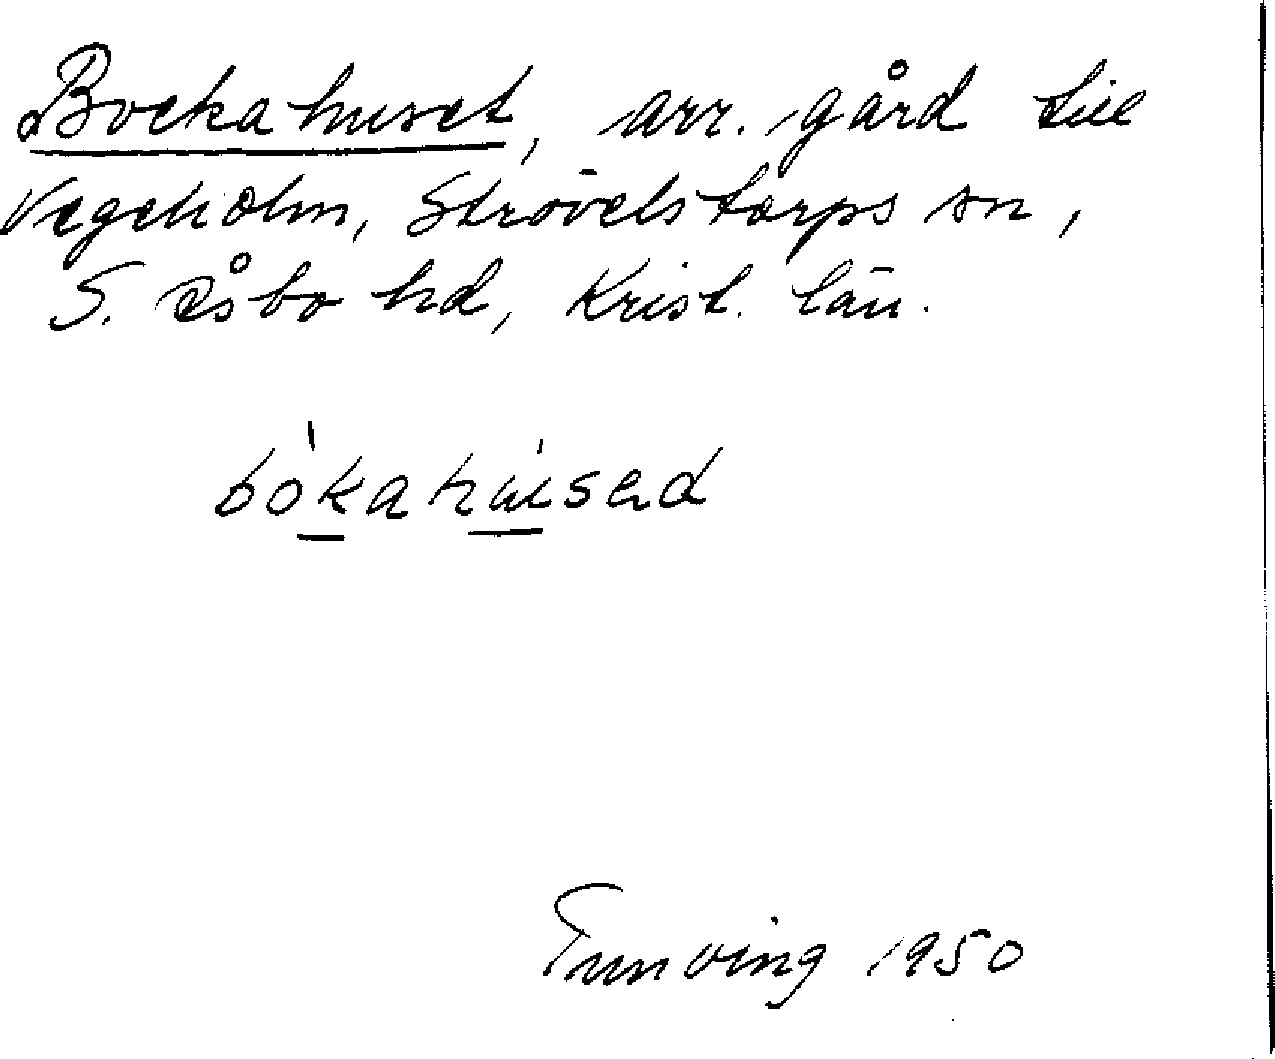 Bockahuset, arr. gård till
Vegeholm, Strövelstorps sn,
S. Åsbo hd, Krist. län.
bòkahúsəd
1950